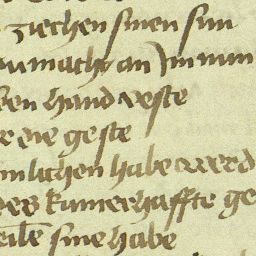 ziechen sinen sun
macht an Im nim
ben hand veste
e die geste
mlichen habe werd
des kumerhaffte ge
eile sine habe